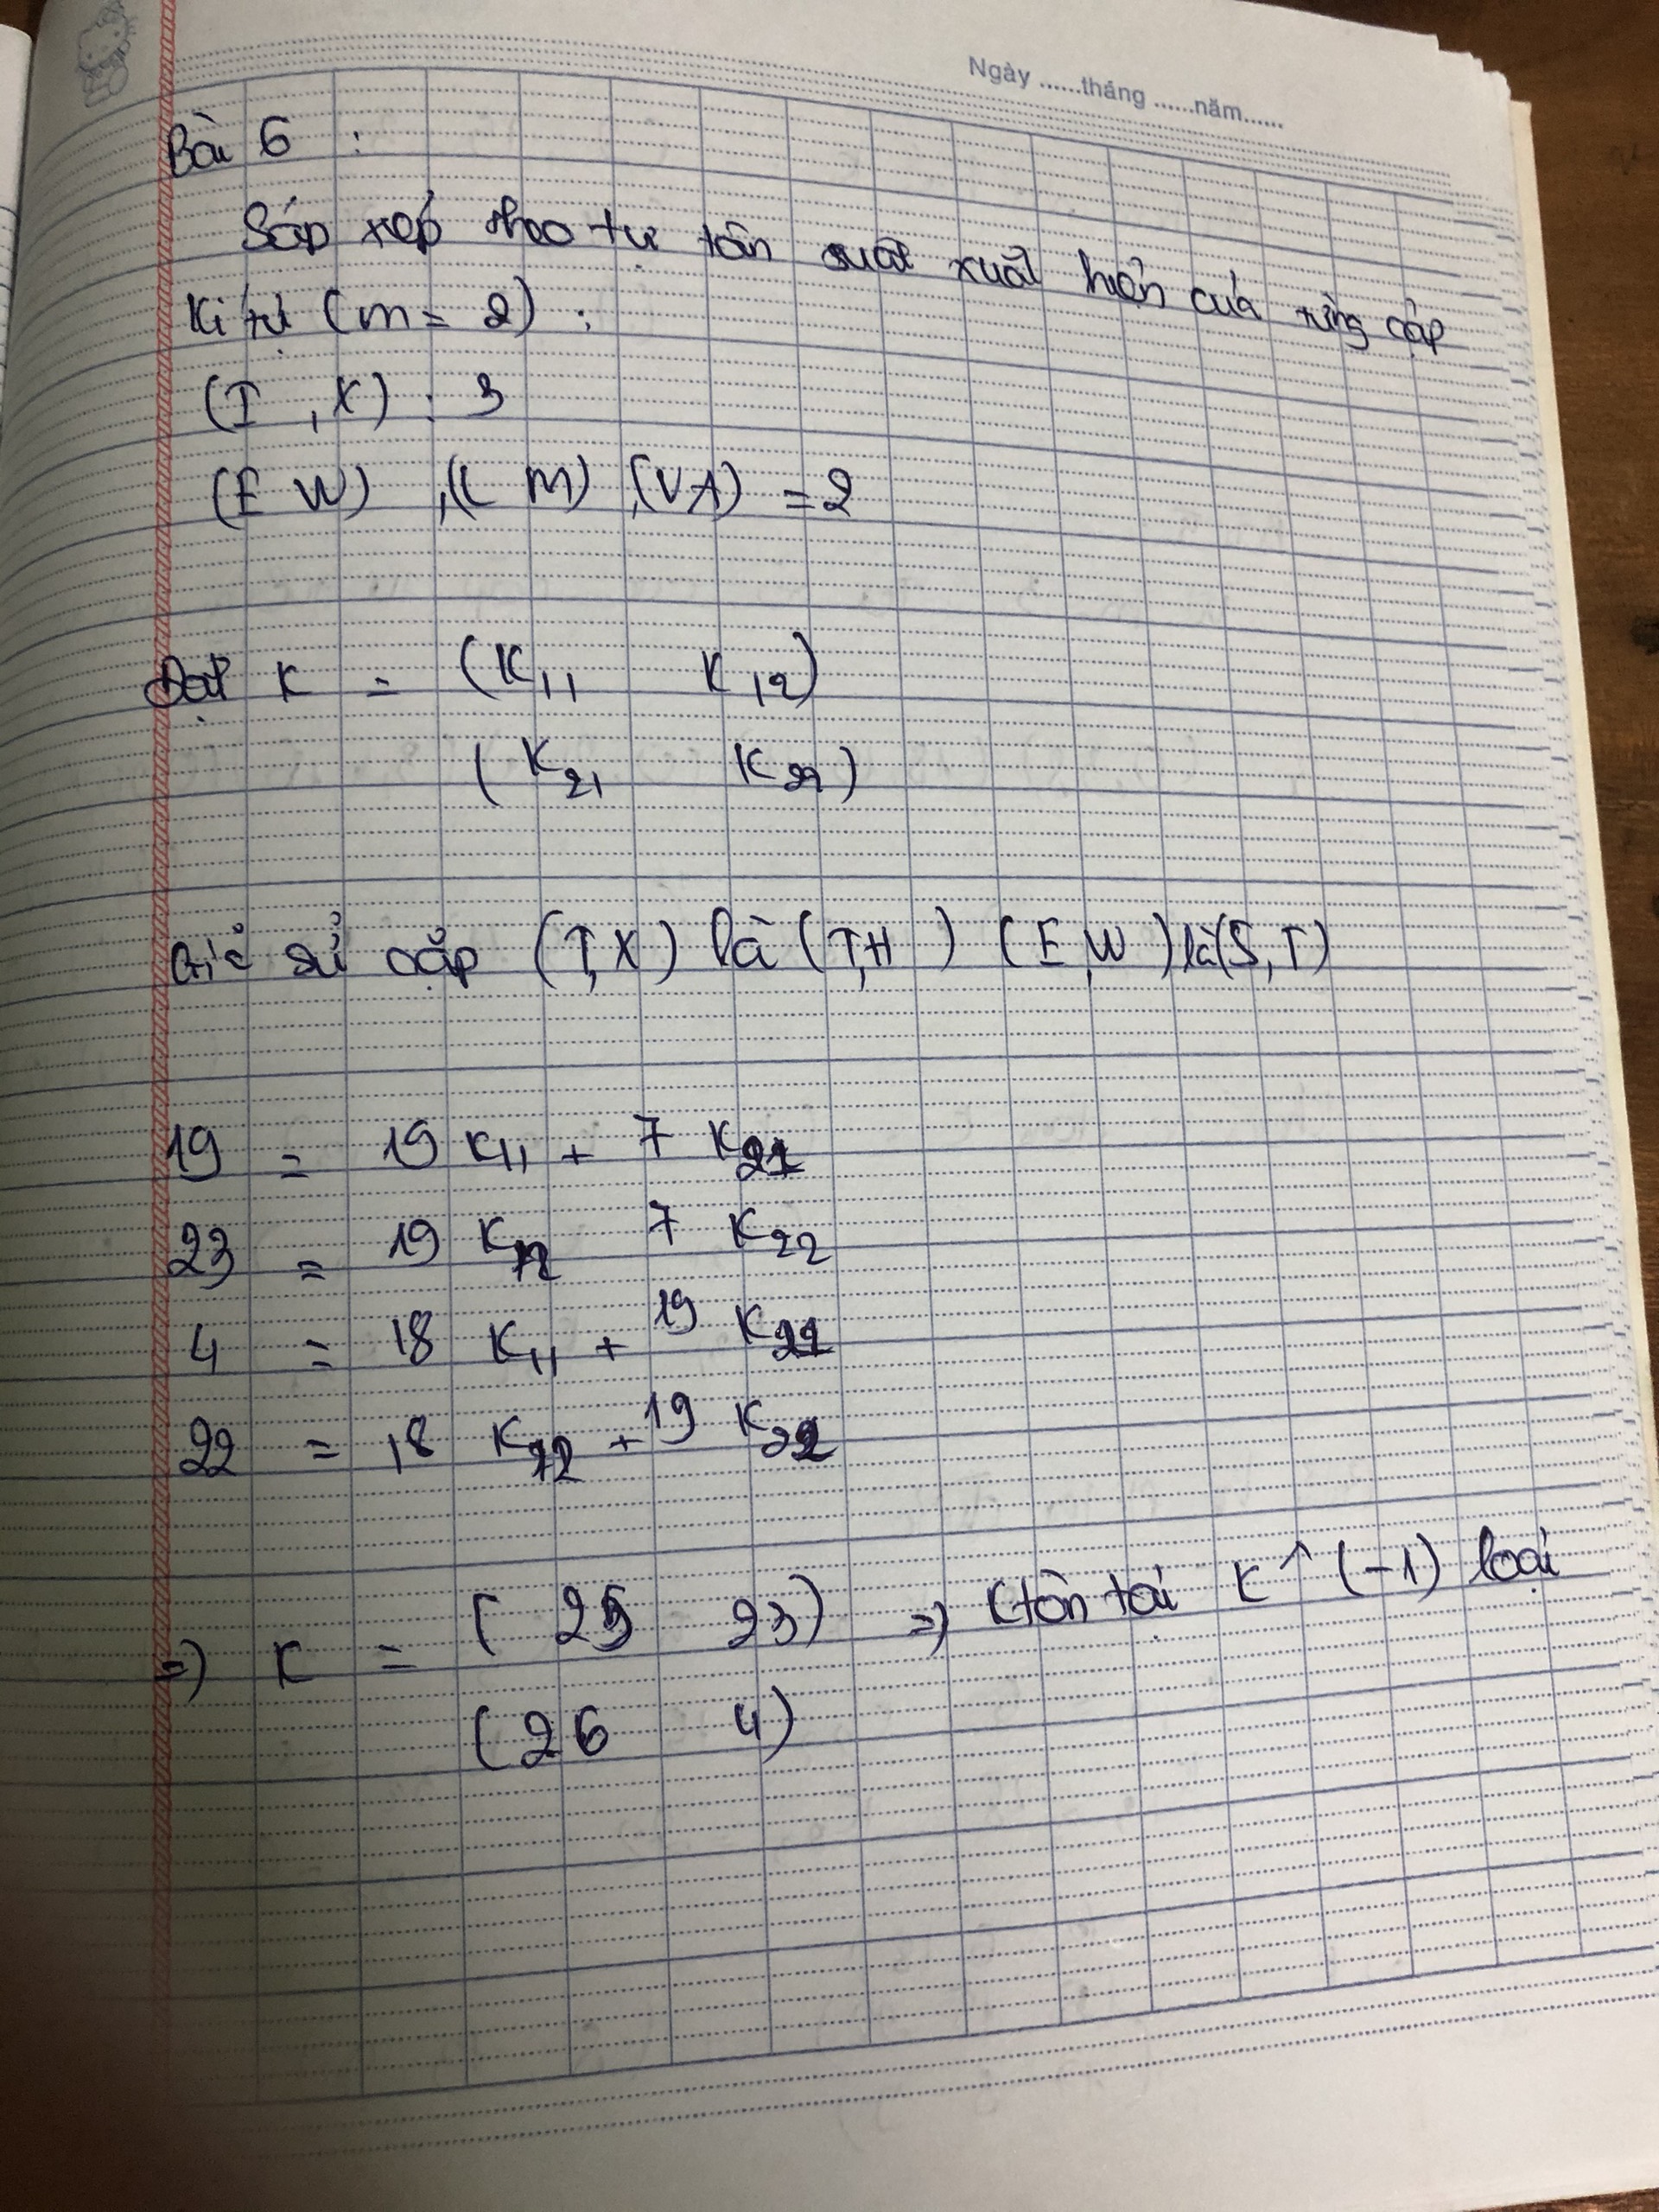 Ngày ......tháng ......năm......
Bài 6 :
Sắp xếp theo tự tần suất xuất hiện của từng cặp
Kí tự (m = 2) :
(T , X) : 3
(E W) , (L M) , (V A) = 2
Đặt K = (K11 K12)
(K21 K22)
Giả sử cặp (T, X) là (T, H) (E, W) là (S, T)
19 = 19 K11 + 7 K21
23 = 19 K12 7 K22
4 = 18 K11 + 19 K21
22 = 18 K12 + 19 K22
=> K = ( 25 23) => K tồn tại K^(-1) loại
(26 4)